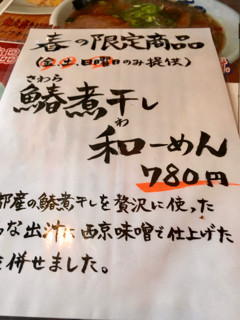 春の限定商品
(金、土、日曜日のみ提供)
さわら
鰆煮干し
わ
和ーめん
780円
都産の鰆煮干しを贅沢に使った
な出汁に西京味噌で仕上げた
を併せました。